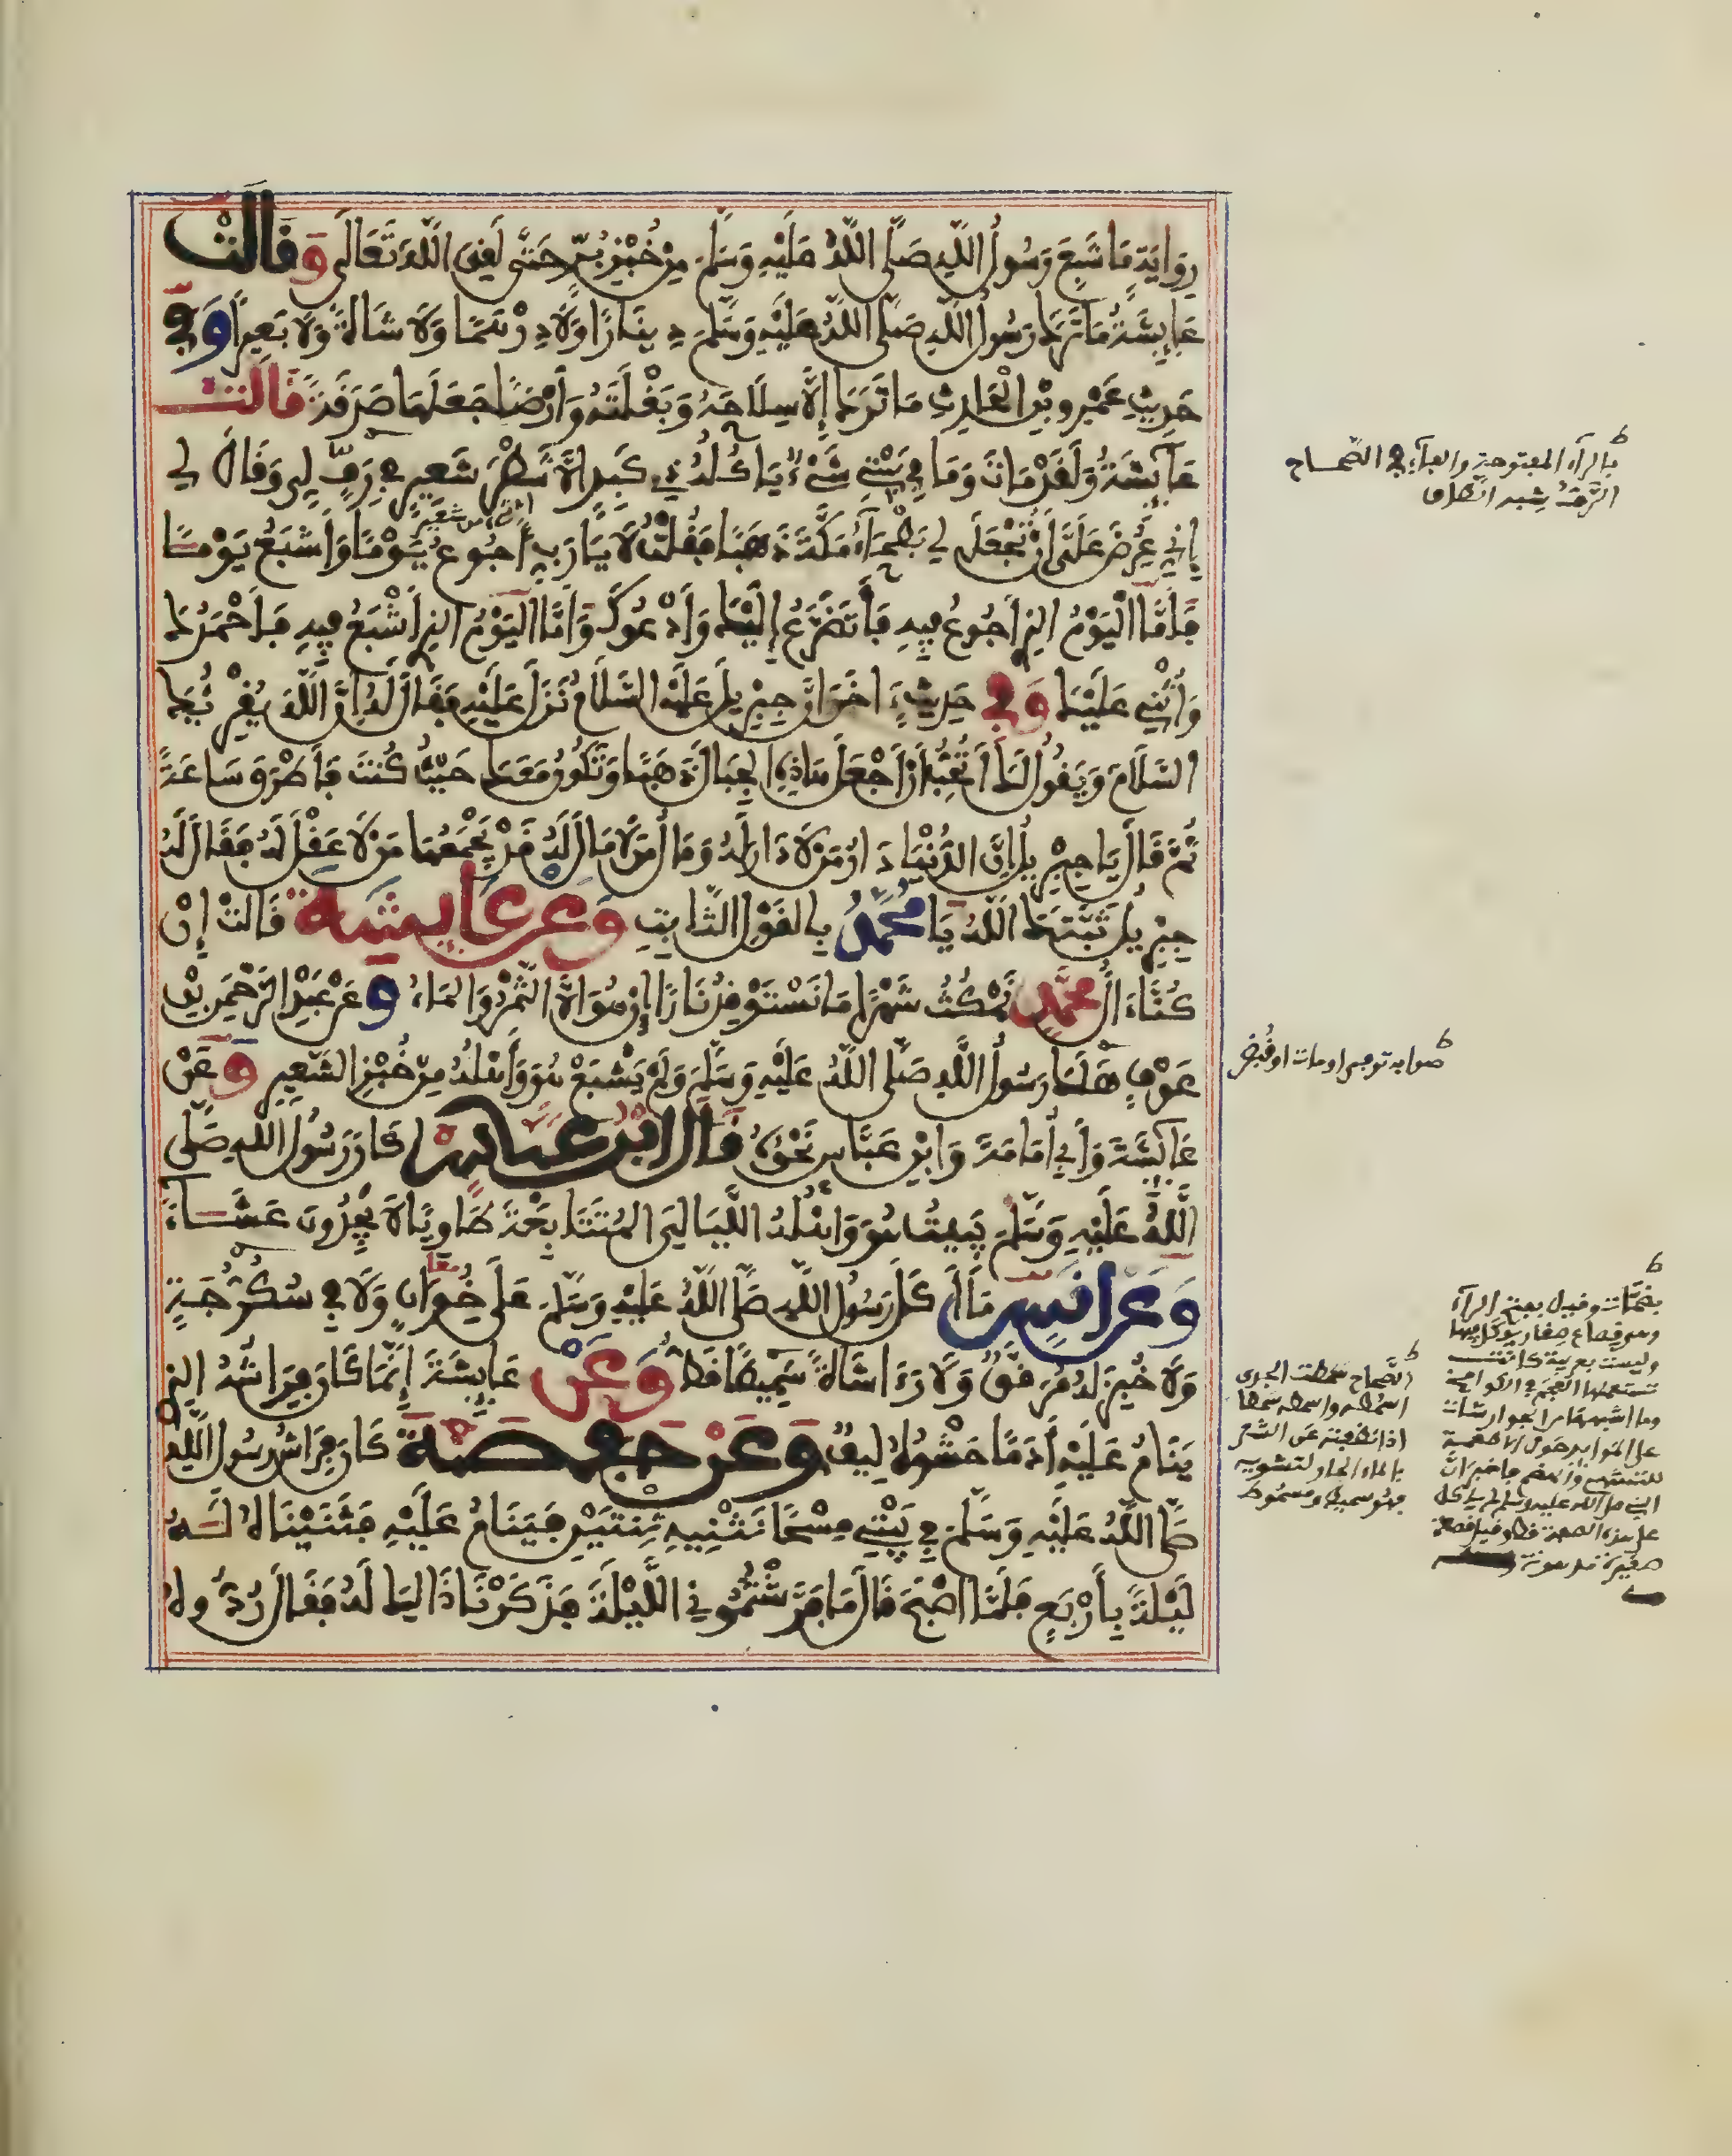 رِوَايَةِ مَا شَبِعَ رَسُولُ اللَّهِ صَلَّى اللَّهُ عَلَيْهِ وَسَلَّمَ مِنْ خُبْزِ بُرٍّ حَتَّى لَقِيَ اللَّهَ تَعَالَى وَقَالَتْ
عَايِشَةُ مَا تَرَكَ رَسُولُ اللَّهِ صَلَّى اللَّهُ عَلَيْهِ وَسَلَّمَ دِينَارًا وَلَا دِرْهَمًا وَلَا شَاةً وَلَا بَعِيرًا وَفِي
حَدِيثِ عَمْرِو بْنِ الْحَارِثِ مَا تَرَكَ إِلَّا سِلَاحَهُ وَبَغْلَتَهُ وَأَرْضًا جَعَلَهَا صَدَقَةً قَالَتْ
عَآئِشَةُ وَلَقَدْ مَاتَ وَمَا فِي بَيْتِي شَيْءٌ يَاكُلُهُ ذُو كَبِدٍ إِلَّا شَطْرَ شَعِيرٍ فِي رَفٍّ لِي وَقَالَ لِي
إِنِّي عُرِضَ عَلَيَّ أَنْ تُجْعَلَ لِي بَطْحَآءُ مَكَّةَ ذَهَبًا فَقُلْتُ لَا يَا رَبِّ أَجُوعُ يَوْمًا وَأَشْبَعُ يَوْمًا
فَأَمَّا الْيَوْمُ الذِي أَجُوعُ فِيهِ فَأَتَضَرَّعُ إِلَيْكَ وَأَدْعُوكَ وَأَمَّا الْيَوْمُ الذِي أَشْبَعُ فِيهِ فَأَحْمَدُكَ
وَأُثْنِي عَلَيْكَ وَفِي حَدِيثٍ ءَاخَرَ أَنَّ جِبْرِيلَ عَلَيْهِ السَّلَامُ نَزَلَ عَلَيْهِ فَقَالَ لَهُ إِنَّ اللَّهَ يُقْرِئُكَ
السَّلَامَ وَيَقُولُ لَكَ أَتُحِبُّ أَنْ أَجْعَلَ هَاذِهِ الْجِبَالَ ذَهَبًا وَتَكُونُ مَعَكَ حَيْثُ كُنْتَ فَأَطْرَقَ سَاعَةً
ثُمَّ قَالَ يَا جِبْرِيلُ إِنَّ الدُّنْيَا دَارُ مَنْ لَا دَارَ لَهُ وَمَالُ مَنْ لَا مَالَ لَهُ قَدْ يَجْمَعُهَا مَنْ لَا عَقْلَ لَهُ فَقَالَ لَهُ
جِبْرِيلُ ثَبَّتَكَ اللَّهُ يَا مُحَمَّدُ بِالقَوْلِ الثَّابِتِ وَعَنْ عَايِشَةَ قَالَتْ إِنْ
كُنَّا ءَالَ مُحَمَّدٍ نَمْكُثُ شَهْرًا مَا نَسْتَوْقِدُ نَارًا إِنْ هُوَ إِلَّا التَّمْرُ وَالْمَاءُ وَعَنْ عَبْدِ الرَّحْمَنِ بْنِ
عَوْفٍ هَلَكَ رَسُولُ اللَّهِ صَلَّى اللَّهُ عَلَيْهِ وَسَلَّمَ وَلَمْ يَشْبَعْ هُوَ وَأَهْلُهُ مِنْ خُبْزِ الشَّعِيرِ وَعَنْ
عَآئِشَةَ وَأَبِي أُمَامَةَ وَابْنِ عَبَّاسٍ نَحْوُهُ قَالَ ابْنُ عَبَّاسٍ كَانَ رَسُولُ اللَّهِ صَلَّى
اللَّهُ عَلَيْهِ وَسَلَّمَ يَبِيتُ هُوَ وَأَهْلُهُ اللَّيَالِيَ المُتَتَابِعَةَ طَاوِيًا لَا يَجِدُونَ عَشَاءً
وَعَنْ أَنَسٍ مَا أَكَلَ رَسُولُ اللَّهِ صَلَّى اللَّهُ عَلَيْهِ وَسَلَّمَ عَلَى خِوَانٍ وَلَا فِي سُكُرُّجَةٍ
وَلَا خُبِزَ لَهُ مُرَقَّقٌ وَلَا رَءَا شَاةً سَمِيطًا قَطُّ وَعَنْ عَايِشَةَ إِنَّمَا كَانَ فِرَاشُهُ الذِي
يَنَامُ عَلَيْهِ أَدَمًا حَشْوُهُ لِيفٌ وَعَنْ حَفْصَةَ كَانَ فِرَاشُ رَسُولِ اللَّهِ
صَلَّى اللَّهُ عَلَيْهِ وَسَلَّمَ فِي بَيْتِي مِسْحًا نَثْنِيهِ ثِنْيَتَيْنِ فَيَنَامُ عَلَيْهِ فَثَنَيْنَاهُ لَهُ
لَيْلَةً بِأَرْبَعٍ فَلَمَّا أَصْبَحَ قَالَ مَا فَرَشْتُمُونِي اللَّيْلَةَ فَذَكَرْنَا ذَالِكَ لَهُ فَقَالَ رُدُّوهُ
بالرآء المفتوحة والفآء في الصحاح
الرف شبه الطاق
صوابه توفي او مات او قبض
بضمات وقيل بفتح الرآء
وهي قصاع صغار يوكل فيها
وليست بعربية كانت
تستعملها العجم في الكوامخ
وما اشبهها من الجوارشات
على الموايد حول الاطعمة
للتشهي والهضم فاخبر ان
النبي صلى الله عليه وسلم لم ياكل
على هذه الصفة قط وقيل قصعة
صغيرة مدهونة
الصحاح سمطت الجدي
اسمطه واسمطه سمطا
اذا نظفته من الشعر
بالماء الحار لتشويه
فهو سميط ومسموط